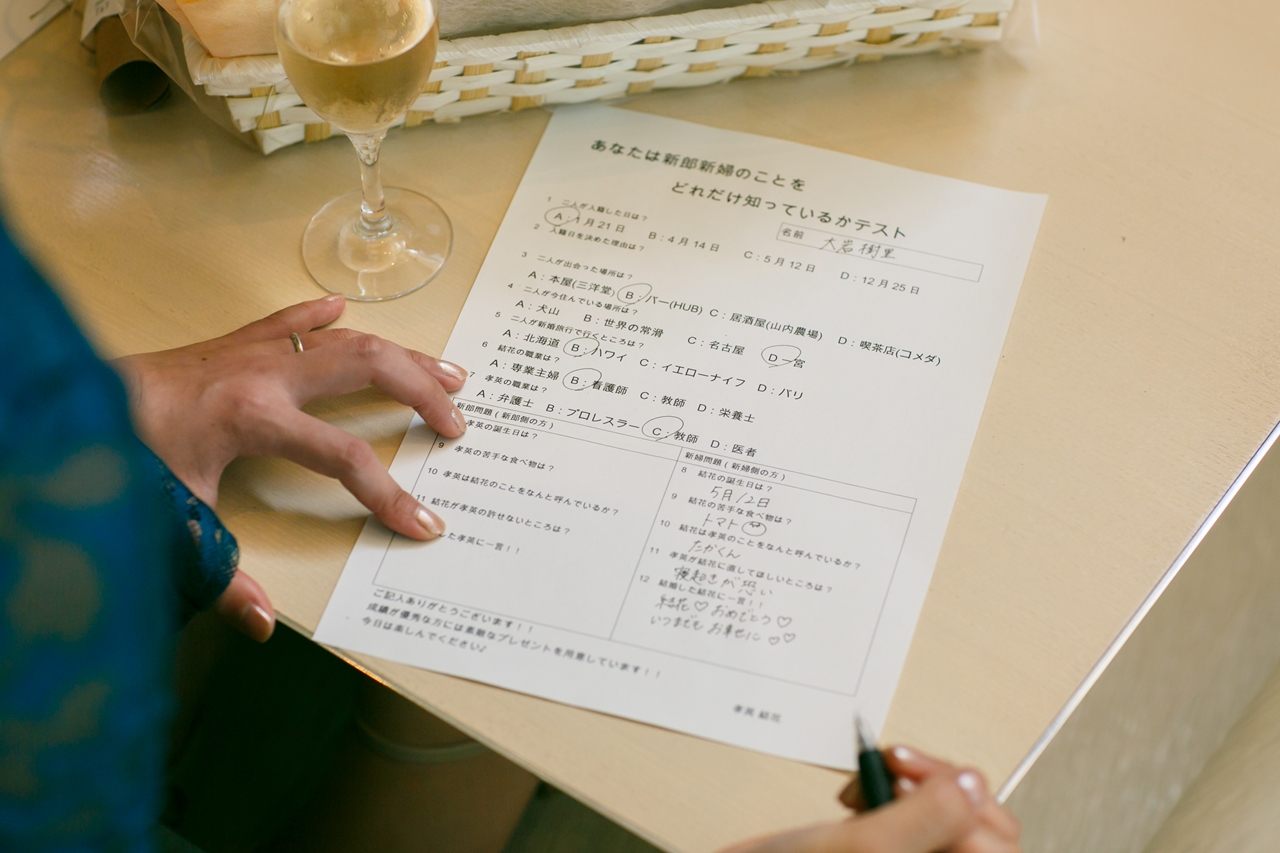 あなたは新郎新婦のことを
どれだけ知っているかテスト
名前 大岩樹里
1 二人が入籍した日は？
A：1月21日 B：4月14日 C：5月12日 D：12月25日
2 入籍日を決めた理由は？
3 二人が出会った場所は？
A：本屋(三洋堂) B：バー(HUB) C：居酒屋(山内農場) D：喫茶店(コメダ)
4 二人が今住んでいる場所は？
A：犬山 B：世界の常滑 C：名古屋 D：一宮
5 二人が新婚旅行で行くところは？
A：北海道 B：ハワイ C：イエローナイフ D：バリ
6 結花の職業は？
A：専業主婦 B：看護師 C：教師 D：栄養士
7 孝英の職業は？
A：弁護士 B：プロレスラー C：教師 D：医者
新郎問題(新郎側の方)
孝英の誕生日は？
9 孝英の苦手な食べ物は？
10 孝英は結花のことをなんと呼んでいるか？
11 結花が孝英の許せないところは？
した孝英に一言！！
新婦問題(新婦側の方)
8 結花の誕生日は？
5月12日
9 結花の苦手な食べ物は？
トマト
10 結花は孝英のことをなんと呼んでいるか？
たかくん
11 孝英が結花に直してほしいところは？
寝起きが恐い
12 結婚した結花に一言！！
結花♡おめでとう♡
いつまでもお幸せに♡♡
ご記入ありがとうございます！！
成績が優秀な方には素敵なプレゼントを用意しています！！
今日は楽しんでください♪
孝英 結花